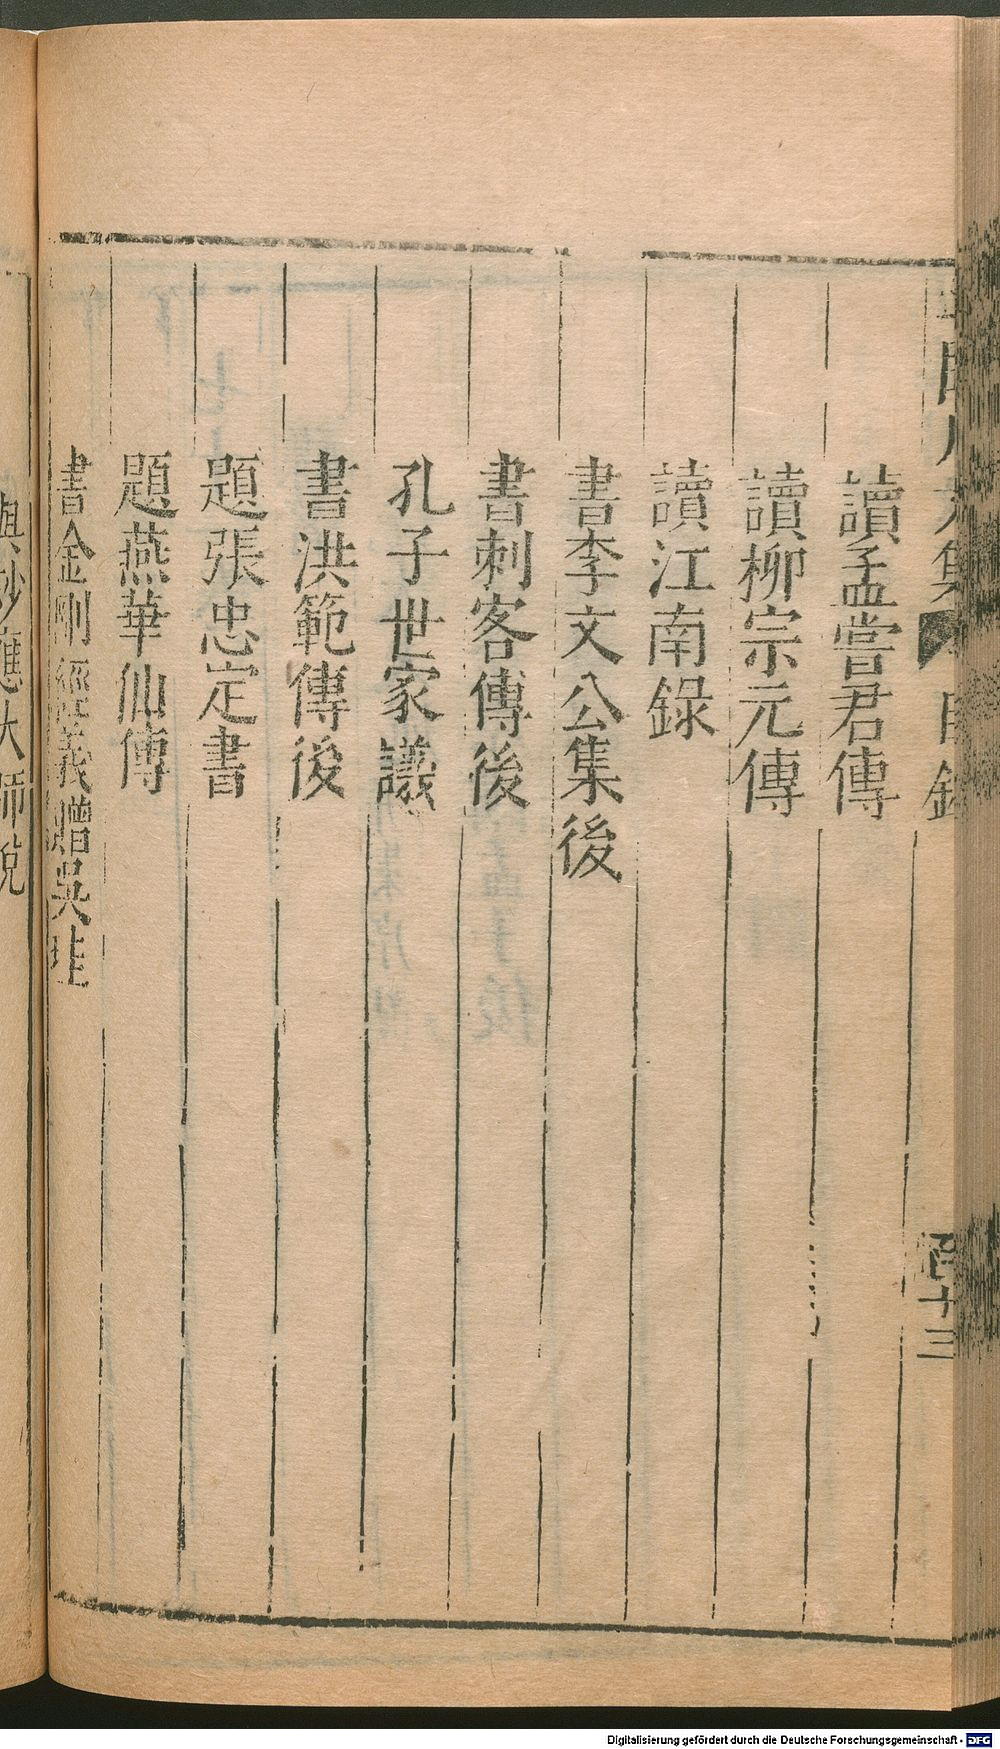 讀孟嘗君傳
讀柳宗元傳
讀江南錄
書李文公集後
書刺客傳後
孔子世家議
書洪範傳後
題張忠定書
題燕華仙傳
書金剛經義贈吳珪
與妙應大師說
十三
Digitalisierung gefördert durch die Deutsche Forschungsgemeinschaft - DFG